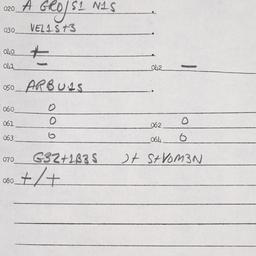 020 A GROJS1 N1S
030 VEL1S+3
040 +
041 — 042 —
050 ARBU1S
060 0
061 0 062 0
063 0 064 0
070 G3Z+1B3S )+ S+VOM3N
080 +/+